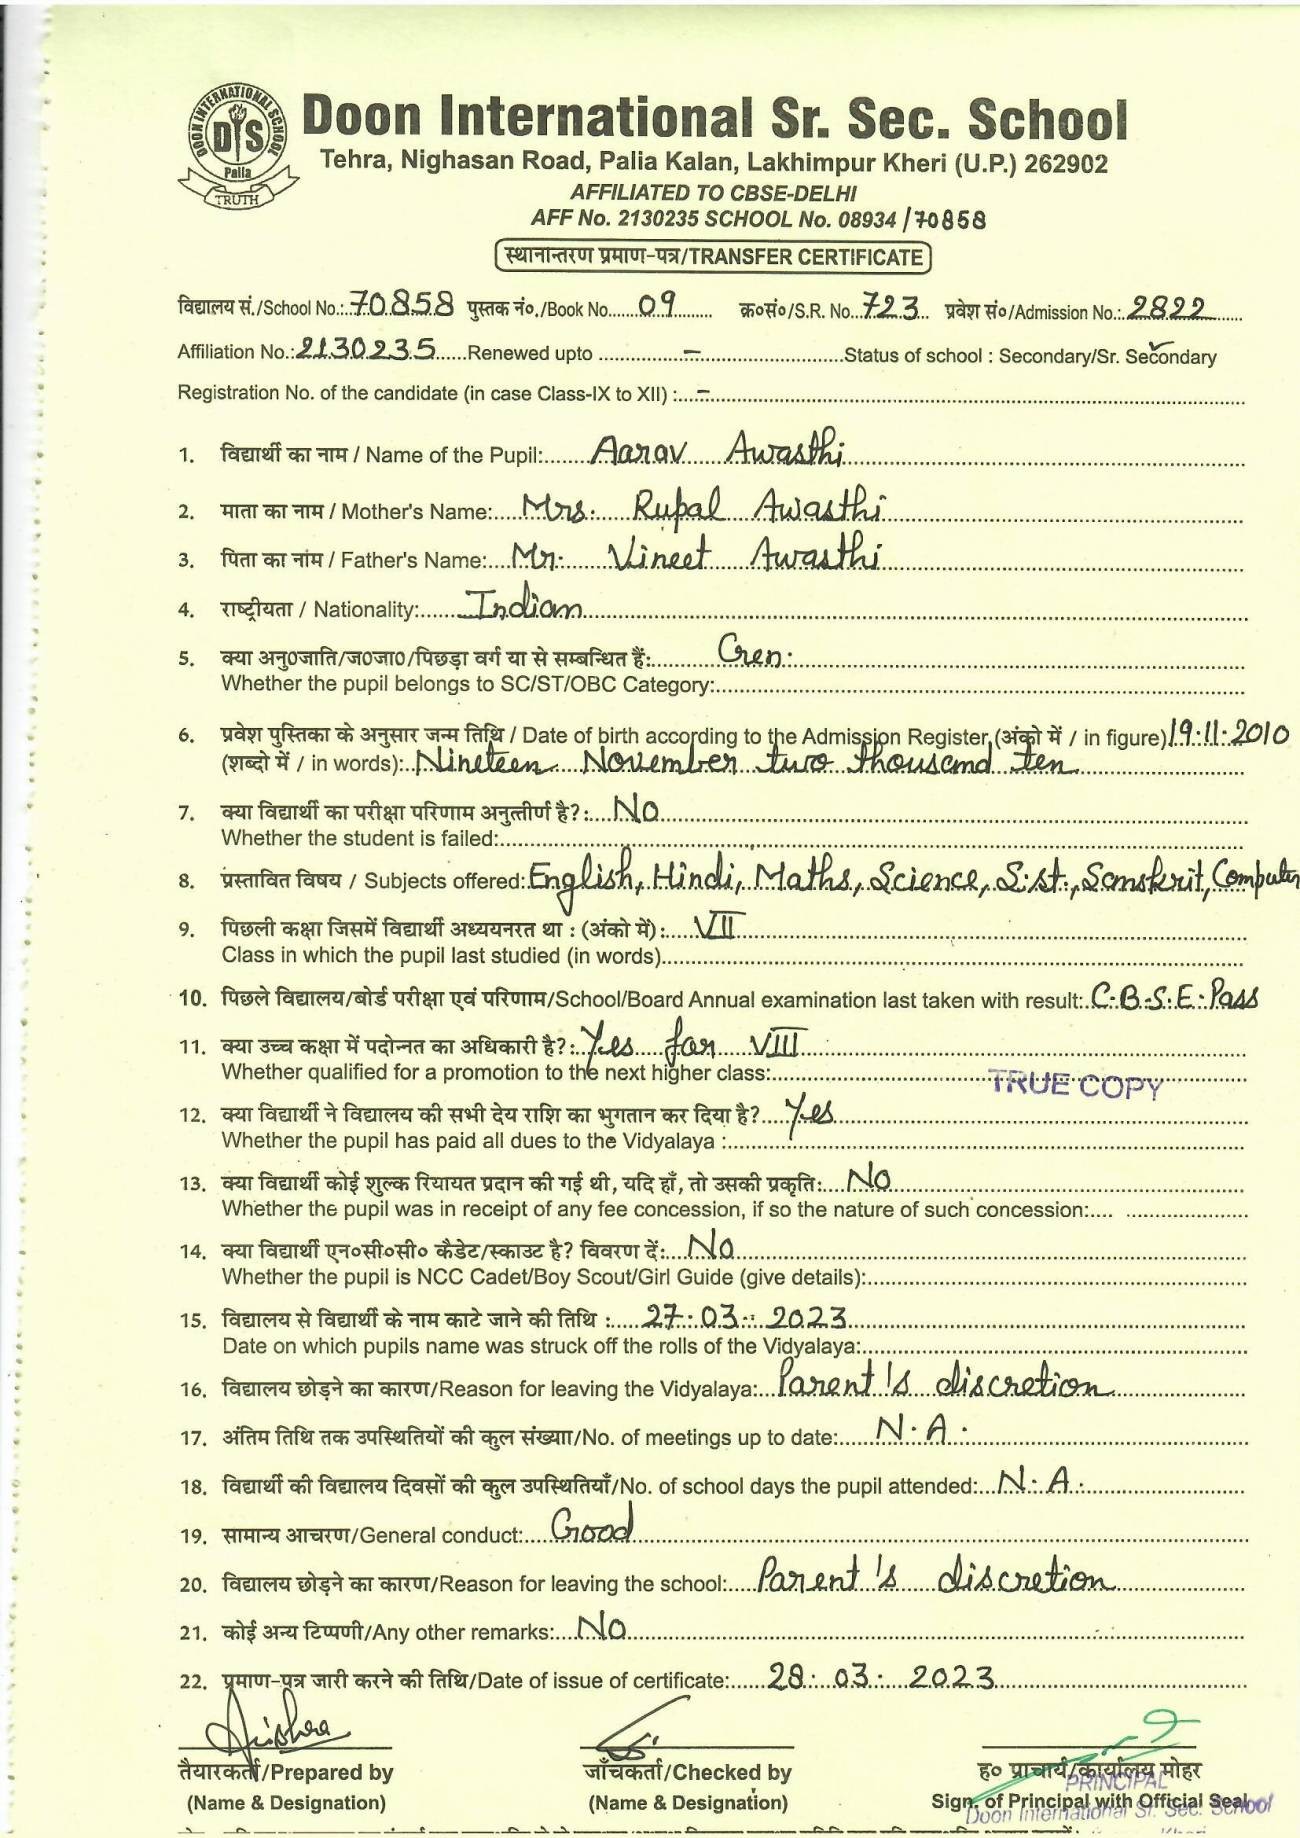 DOON INTERNATIONAL SCHOOL
DIS
Palia
TRUTH
Doon International Sr. Sec. School
Tehra, Nighasan Road, Palia Kalan, Lakhimpur Kheri (U.P.) 262902
AFFILIATED TO CBSE-DELHI
AFF No. 2130235 SCHOOL No. 08934 /70858
स्थानान्तरण प्रमाण-पत्र/TRANSFER CERTIFICATE
विद्यालय सं./School No.: 70858 पुस्तक नं०./Book No. 09 क्र०सं०/S.R. No. 723 प्रवेश सं०/Admission No.: 2822
Affiliation No.: 2130235 Renewed upto - Status of school : Secondary/Sr. Secondary
Registration No. of the candidate (in case Class-IX to XII) : -
1. विद्यार्थी का नाम / Name of the Pupil: Aarav Awasthi
2. माता का नाम / Mother's Name: Mrs. Rupal Awasthi
3. पिता का नांम / Father's Name: Mr. Vineet Awasthi
4. राष्ट्रीयता / Nationality: Indian
5. क्या अनु0जाति/ज0जा0/पिछड़ा वर्ग या से सम्बन्धित हैं: Gen.
Whether the pupil belongs to SC/ST/OBC Category:
6. प्रवेश पुस्तिका के अनुसार जन्म तिथि / Date of birth according to the Admission Register (अंको में / in figure) 19.11.2010
(शब्दो में / in words): Nineteen November two thousand ten
7. क्या विद्यार्थी का परीक्षा परिणाम अनुत्तीर्ण है?: No
Whether the student is failed:
8. प्रस्तावित विषय / Subjects offered: English, Hindi, Maths, Science, S.st., Sanskrit, Computer
9. पिछली कक्षा जिसमें विद्यार्थी अध्ययनरत था : (अंको में): VII
Class in which the pupil last studied (in words)
10. पिछले विद्यालय/बोर्ड परीक्षा एवं परिणाम/School/Board Annual examination last taken with result: C.B.S.E. Pass
11. क्या उच्च कक्षा में पदोन्नत का अधिकारी है?: Yes for VIII
Whether qualified for a promotion to the next higher class:
TRUE COPY
12. क्या विद्यार्थी ने विद्यालय की सभी देय राशि का भुगतान कर दिया है? Yes
Whether the pupil has paid all dues to the Vidyalaya :
13. क्या विद्यार्थी कोई शुल्क रियायत प्रदान की गई थी, यदि हाँ, तो उसकी प्रकृति: No
Whether the pupil was in receipt of any fee concession, if so the nature of such concession:
14. क्या विद्यार्थी एन०सी०सी० कैडेट/स्काउट है? विवरण दें: No
Whether the pupil is NCC Cadet/Boy Scout/Girl Guide (give details):
15. विद्यालय से विद्यार्थी के नाम काटे जाने की तिथि : 27.03.2023
Date on which pupils name was struck off the rolls of the Vidyalaya:
16. विद्यालय छोड़ने का कारण/Reason for leaving the Vidyalaya: Parent's discretion
17. अंतिम तिथि तक उपस्थितियों की कुल संख्या/No. of meetings up to date: N.A.
18. विद्यार्थी की विद्यालय दिवसों की कुल उपस्थितियाँ/No. of school days the pupil attended: N.A.
19. सामान्य आचरण/General conduct: Good
20. विद्यालय छोड़ने का कारण/Reason for leaving the school: Parent's discretion
21. कोई अन्य टिप्पणी/Any other remarks: No
22. प्रमाण-पत्र जारी करने की तिथि/Date of issue of certificate: 28.03.2023
तैयारकर्ता/Prepared by जाँचकर्ता/Checked by ह० प्राचार्य/कार्यालय मोहर
PRINCIPAL
(Name & Designation) (Name & Designation) Sign. of Principal with Official Seal
Doon International Sr. Sec. School